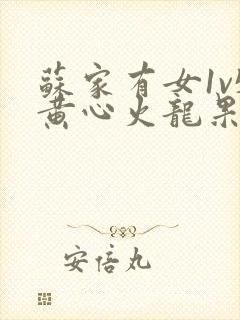 蘇家有女1v
黄心火龍果
安倍丸